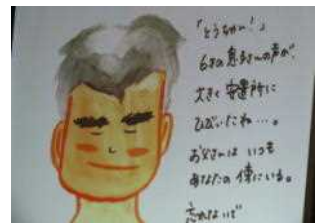 「とうちゃん!」
6才の息子さんの声が、
大きく安置所に
ひびいたね…。
お父さんはいつも
あなたの傍にいる。
忘れないで